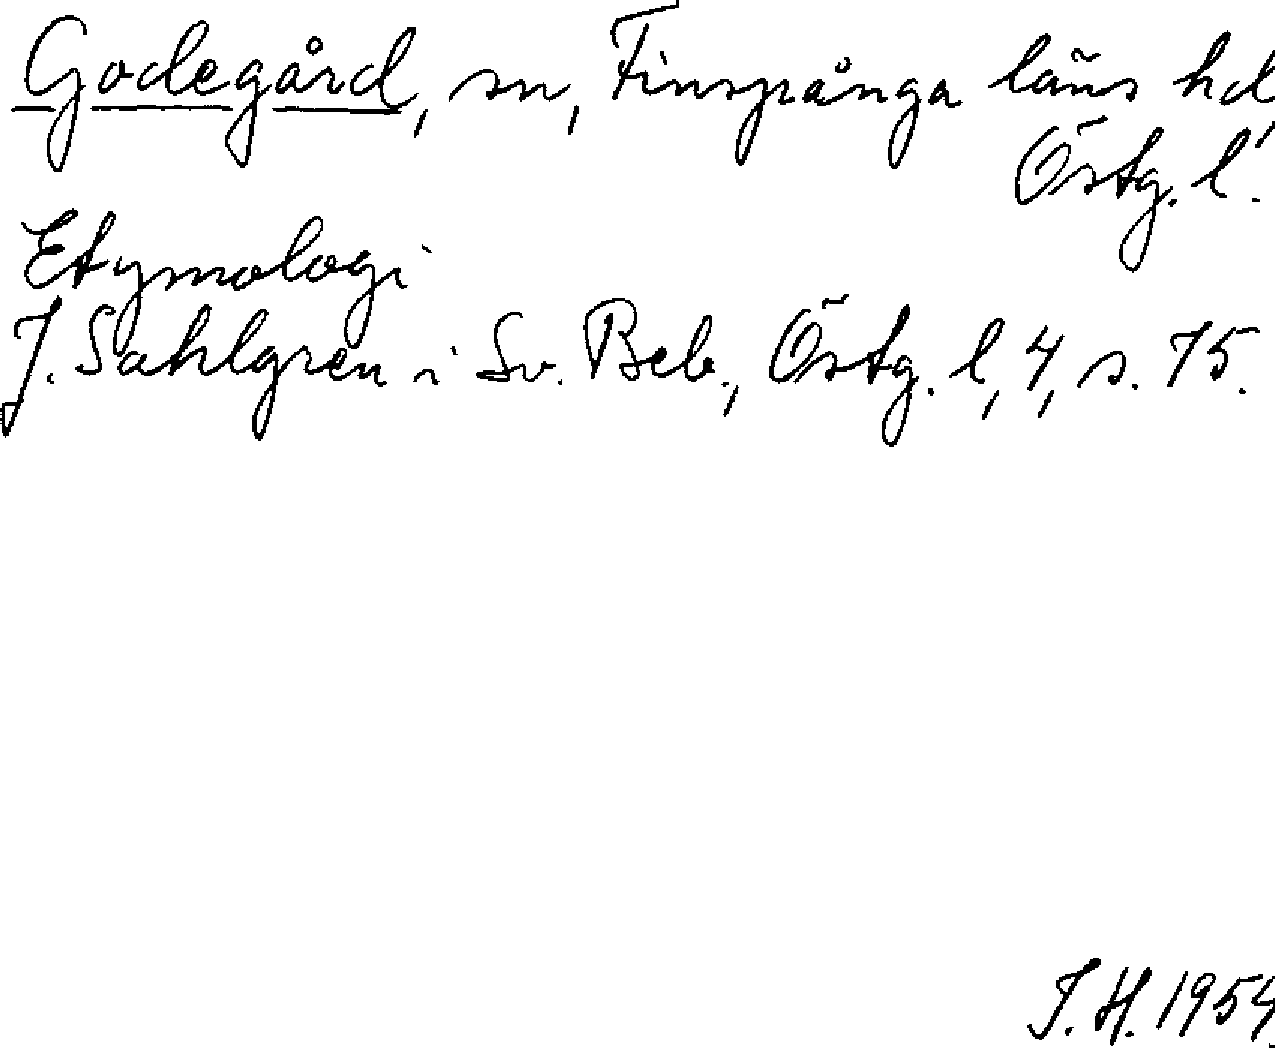 Godegård, sn, Finspånga läns hd,
Östg. l.
Etymologi
J. Sahlgren i Sv. Beb., Östg. l, 4, s. 75.
J. H. 1954.